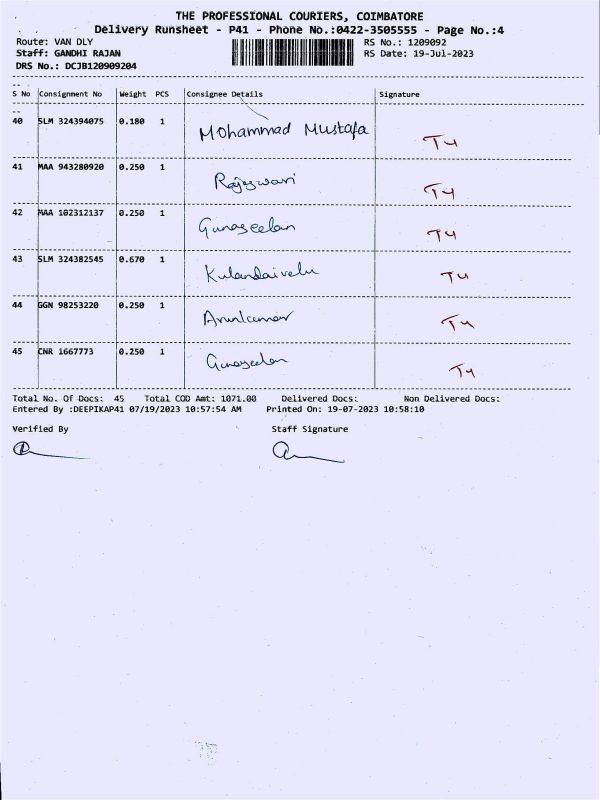 THE PROFESSIONAL COURIERS, COIMBATORE
Delivery Runsheet - P41 - Phone No.:0422-3505555 - Page No.:4
Route: VAN DLY RS No.: 1209092
Staff: GANDHI RAJAN RS Date: 19-Jul-2023
DRS No.: DCJB120909204
S No Consignment No Weight PCS Consignee Details Signature
40 SLM 324394075 0.180 1 Mohammad Mustafa T4
41 MAA 943280920 0.250 1 Rajeswari T4
42 MAA 102312137 0.250 1 Gunaseelan T4
43 SLM 324382545 0.670 1 Kulandaivelu T4
44 GGN 98253220 0.250 1 Arunkumar T4
45 CNR 1667773 0.250 1 Gunaseelan T4
Total No. Of Docs: 45 Total COD Amt: 1071.00 Delivered Docs: Non Delivered Docs:
Entered By :DEEPIKAP41 07/19/2023 10:57:54 AM Printed On: 19-07-2023 10:58:10
Verified By Staff Signature